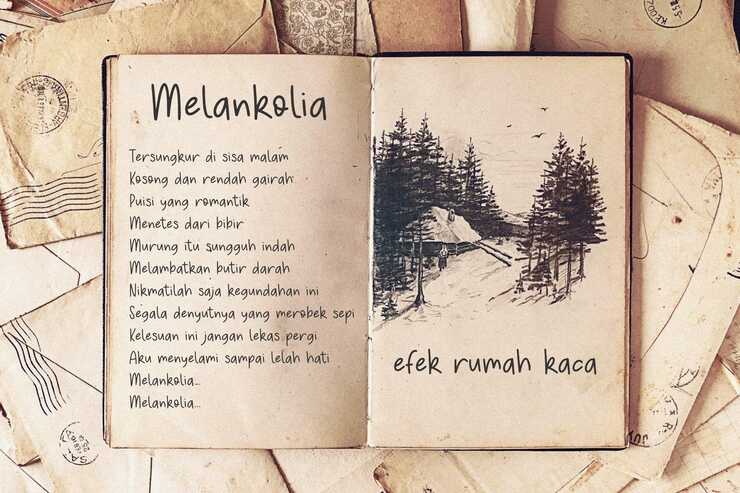 Melankolia
Tersungkur di sisa malam
Kosong dan rendah gairah
Puisi yang romantik
Menetes dari bibir
Murung itu sungguh indah
Melambatkan butir darah
Nikmatilah saja kegundahan ini
Segala denyutnya yang merobek sepi
Kelesuan ini jangan lekas pergi
Aku menyelami sampai lelah hati
Melankolia...
Melankolia...
efek rumah kaca